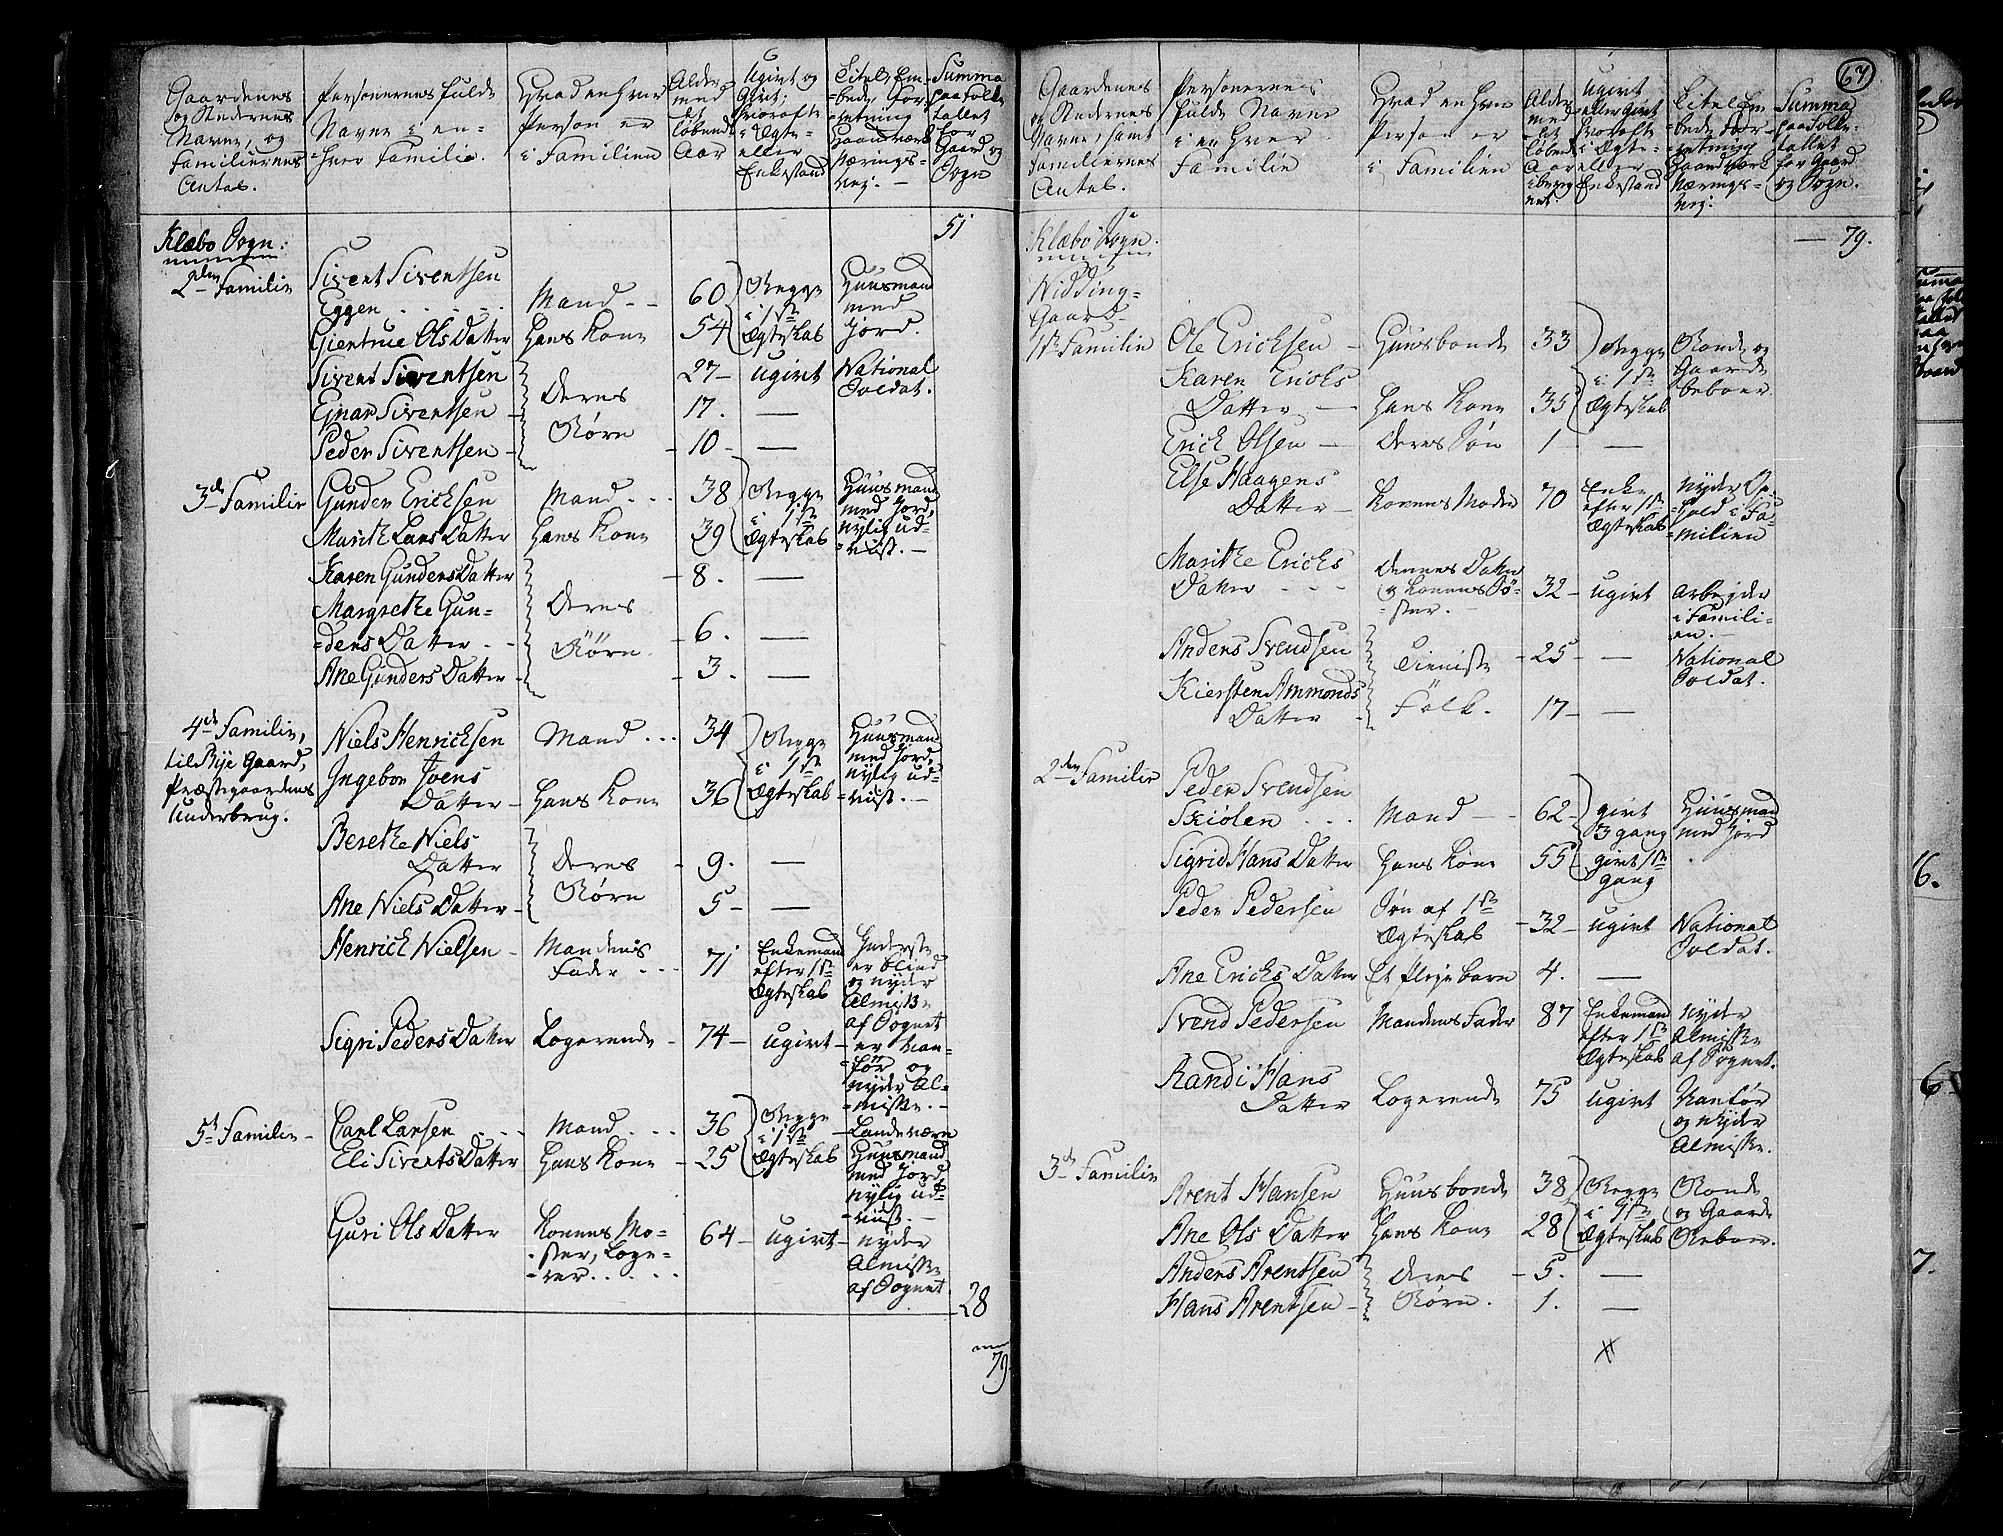 Gaardenes
og Stædernes
Navne, og
Familiernes
Antal.
Personernes fulde
Navne i en-
=hver Familie.
Hvad en hver
Person er
i Familien
Alder
med
det
løbende
Aar
Ugivt og
Givt;
hvorofte
i Ægte-
eller
Enkestand
Titel, Em-
=bede, For-
=retning
Haandværk
Nærings-
vej. —
Summa
paa Folke
tallet
for
Gaard og
Sogn
Klæbo Sogn:
51
2den Familie
Sivert Sivertsen
Eggen . . . .
Mand - -
60
Begge
i 1ste
Ægteskab
Huusmand
med
Jord.
Giertrue Ols Datter
Hans Kone
54
Sivert Sivertsen
27 -
ugivt
National
Soldat.
Ejnar Sivertsen -
Deres
Børn
17.
—
Peder Sivertsen -
10 -
—
3de Familie
Gunder Ericksen
Mand . . .
38
Begge
i 1ste
Ægteskab
Huusmand
med Jord,
nylig ud-
=vist. —
Marith Lars Datter
Hans Kone
39
Karen Gunders Datter
8.
—
Margrethe Gun-
=ders Datter - -
Deres
Børn
6.
—
Ane Gunders Datter -
3.
—
4de Familie,
til Rye Gaard,
Præstegaardens
Underbrug.
Niels Henricksen
Mand . . .
34
Begge
i 1ste
Ægteskab
Huusmand
med Jord,
nylig ud-
=vist. —
Ingebor Joens
Datter -
Hans Kone
36
Berethe Niels
Datter
Deres
Børn
9.
—
Ane Niels Datter -
5 -
—
Henrick Nielsen -
Mandens
Fader . . .
71
Enkemand
efter 1ste
Ægteskab
Inderste
er blind
og nyder
Almisse
af Sognet
Sigri Peders Datter
Logerende -
74 -
ugivt -
er van-
=før og
nyder Al-
=misse. —
5te Familie -
Carl Larsen . . .
Mand . . .
36
Begge
i 1ste
Ægteskab
Landeværn
Huusmand
med Jord
nylig ud-
=vist. —
Eli Siverts Datter
Hans Kone
- 25
Guri Ols Datter
Konens Mo-
=ster, Loge-
=rer . . . .
64 -
ugivt -
nyder
Almisse
af Sognet
28
79
67
Gaardenes
og Stædernes
Navne, samt
Familiernes
Antal.
Personernes
fulde Navne
i en hver
Familie
Hvad en hver
Person er
i Familien
Alder
med
det
løbende
Aar
iberegnet.
Ugivt
eller Givt
hvorofte
i Ægte-
eller
Enkestand
Titel, Em-
=bede, For-
=retning
Haandværk
Nærings-
vej:
Summa
paa Folke-
tallet
for Gaard
og Sogn.
Klæbo Sogn.
— 79.
Nidding-
Gaard
1ste Familie
Ole Ericksen —
Huusbonde
33
Begge
i 1ste
Ægteskab
Bonde og
Gaard-
beboer.
Karen Ericks
Datter —
Hans Kone
35
Erick Olsen —
Deres Søn
1
—
Else Haagens
Datter —
Konens Moder
70
Enke
efter 1ste
Ægteskab
nyder Op-
=hold i Fa-
=milien
Marithe Ericks
Datter - - -
Dennes Datter
og Konens Sø-
=ster. —
32 -
ugivt
arbejder
i Famili-
en. —
Anders Svendsen
Tieniste
Folk.
- 25 -
—
National
Soldat.
Kiersten Ammonds
Datter
17 -
—
2den Familie
Peder Svendsen
Skiølen . . .
Mand —
62 -
givt
3 gang
Huusmand
med Jord
Sigrid Hans Datter
Hans Kone
55
givt 1ste
gang
Peder Pedersen
Søn af 1ste
Ægteskab
- 32 -
ugivt
National
Soldat.
Ane Ericks Datter
Et Pleje barn
4.
—
Svend Pedersen
Mandens Fader
87
Enkemand
efter 1ste
Ægteskab
nyder
Almisse
af Sognet.
Randi Hans
Datter
Logerende
75
ugivt
Vanfør
og nyder
Almisse.
3de Familie
Arent Hansen
Huusbonde
38
Begge
i 1ste
Ægteskab
Bonde
og Gaard-
Beboer.
Ane Ols Datter
Hans Kone
28
Anders Arentsen
Deres
Børn.
- 5.
—
Hans Arentsen -
1.
—